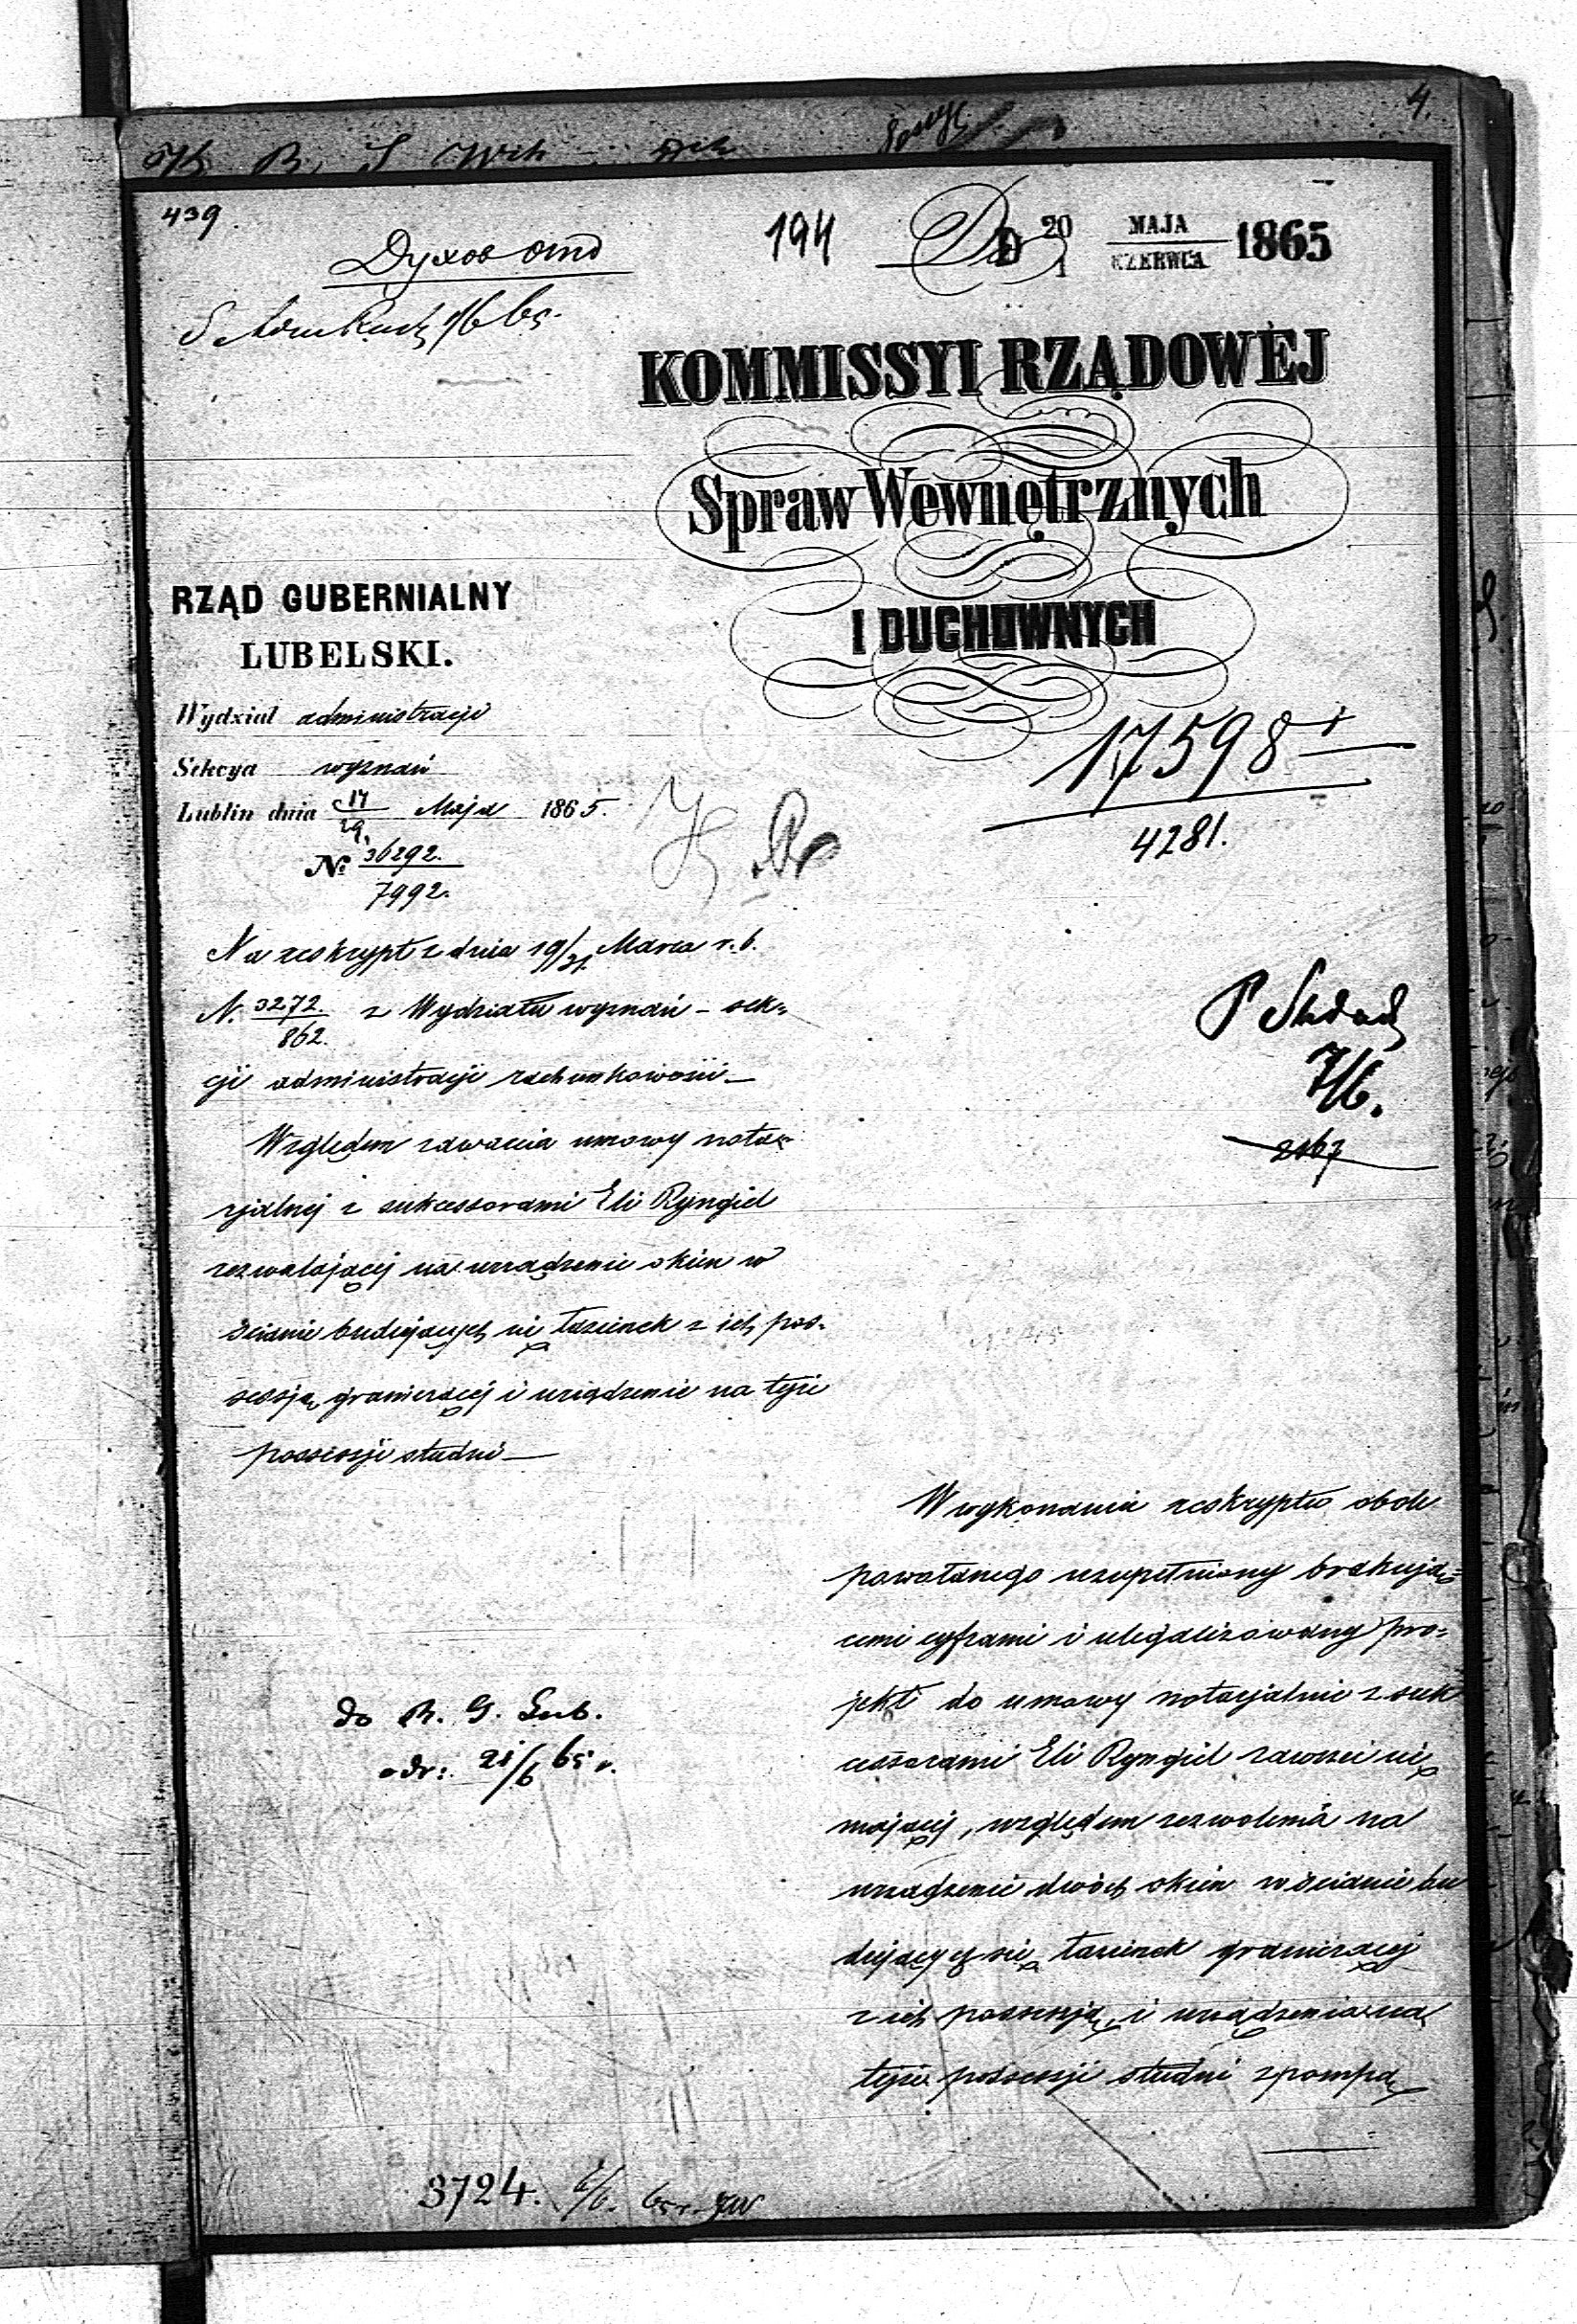 4.
439.
194 Do D 20/1 MAJA/CZERWCA 1865
Духов отд
KOMMISSYI RZĄDOWEJ
Spraw Wewnętrznych
I DUCHOWNYCH
RZĄD GUBERNIALNY
LUBELSKI.
Wydział administracji
Sekcya wyznań
Lublin dnia 17/29 Maja 1865.
№ 36292./7992.
17598
4281.
Na reskrypt z dnia 19/31 Marca r. b.
N. 3272./862. z Wydziału wyznań – sek-
cji administracji rachunkowości –
Względem zawarcia umowy nota-
rjalnej z sukcessorami Eli Ryngiel
zezwalającej na urządzenie okien w
ścianie budujących się łazienek z ich pos-
sessją graniczącej i urządzenie na tejże
possessji studni –
7/6.
2167
W wykonaniu reskryptu obok
powołanego uzupełniony brakują-
cemi cyframi i ulegalizowany pro-
jekt do umowy notarjalnie z suk
cessorami Eli Ryngiel zawrzeć się
mającej, względem zezwolenia na
urządzenie dwóch okien w ścianie bu
dujących się łazienek graniczącej
z ich possessją i urządzenia na
tejże possessji studni z pompą
do R. G. Lub.
odr: 21/6 65 r.
3724. 6/6. 65 r.